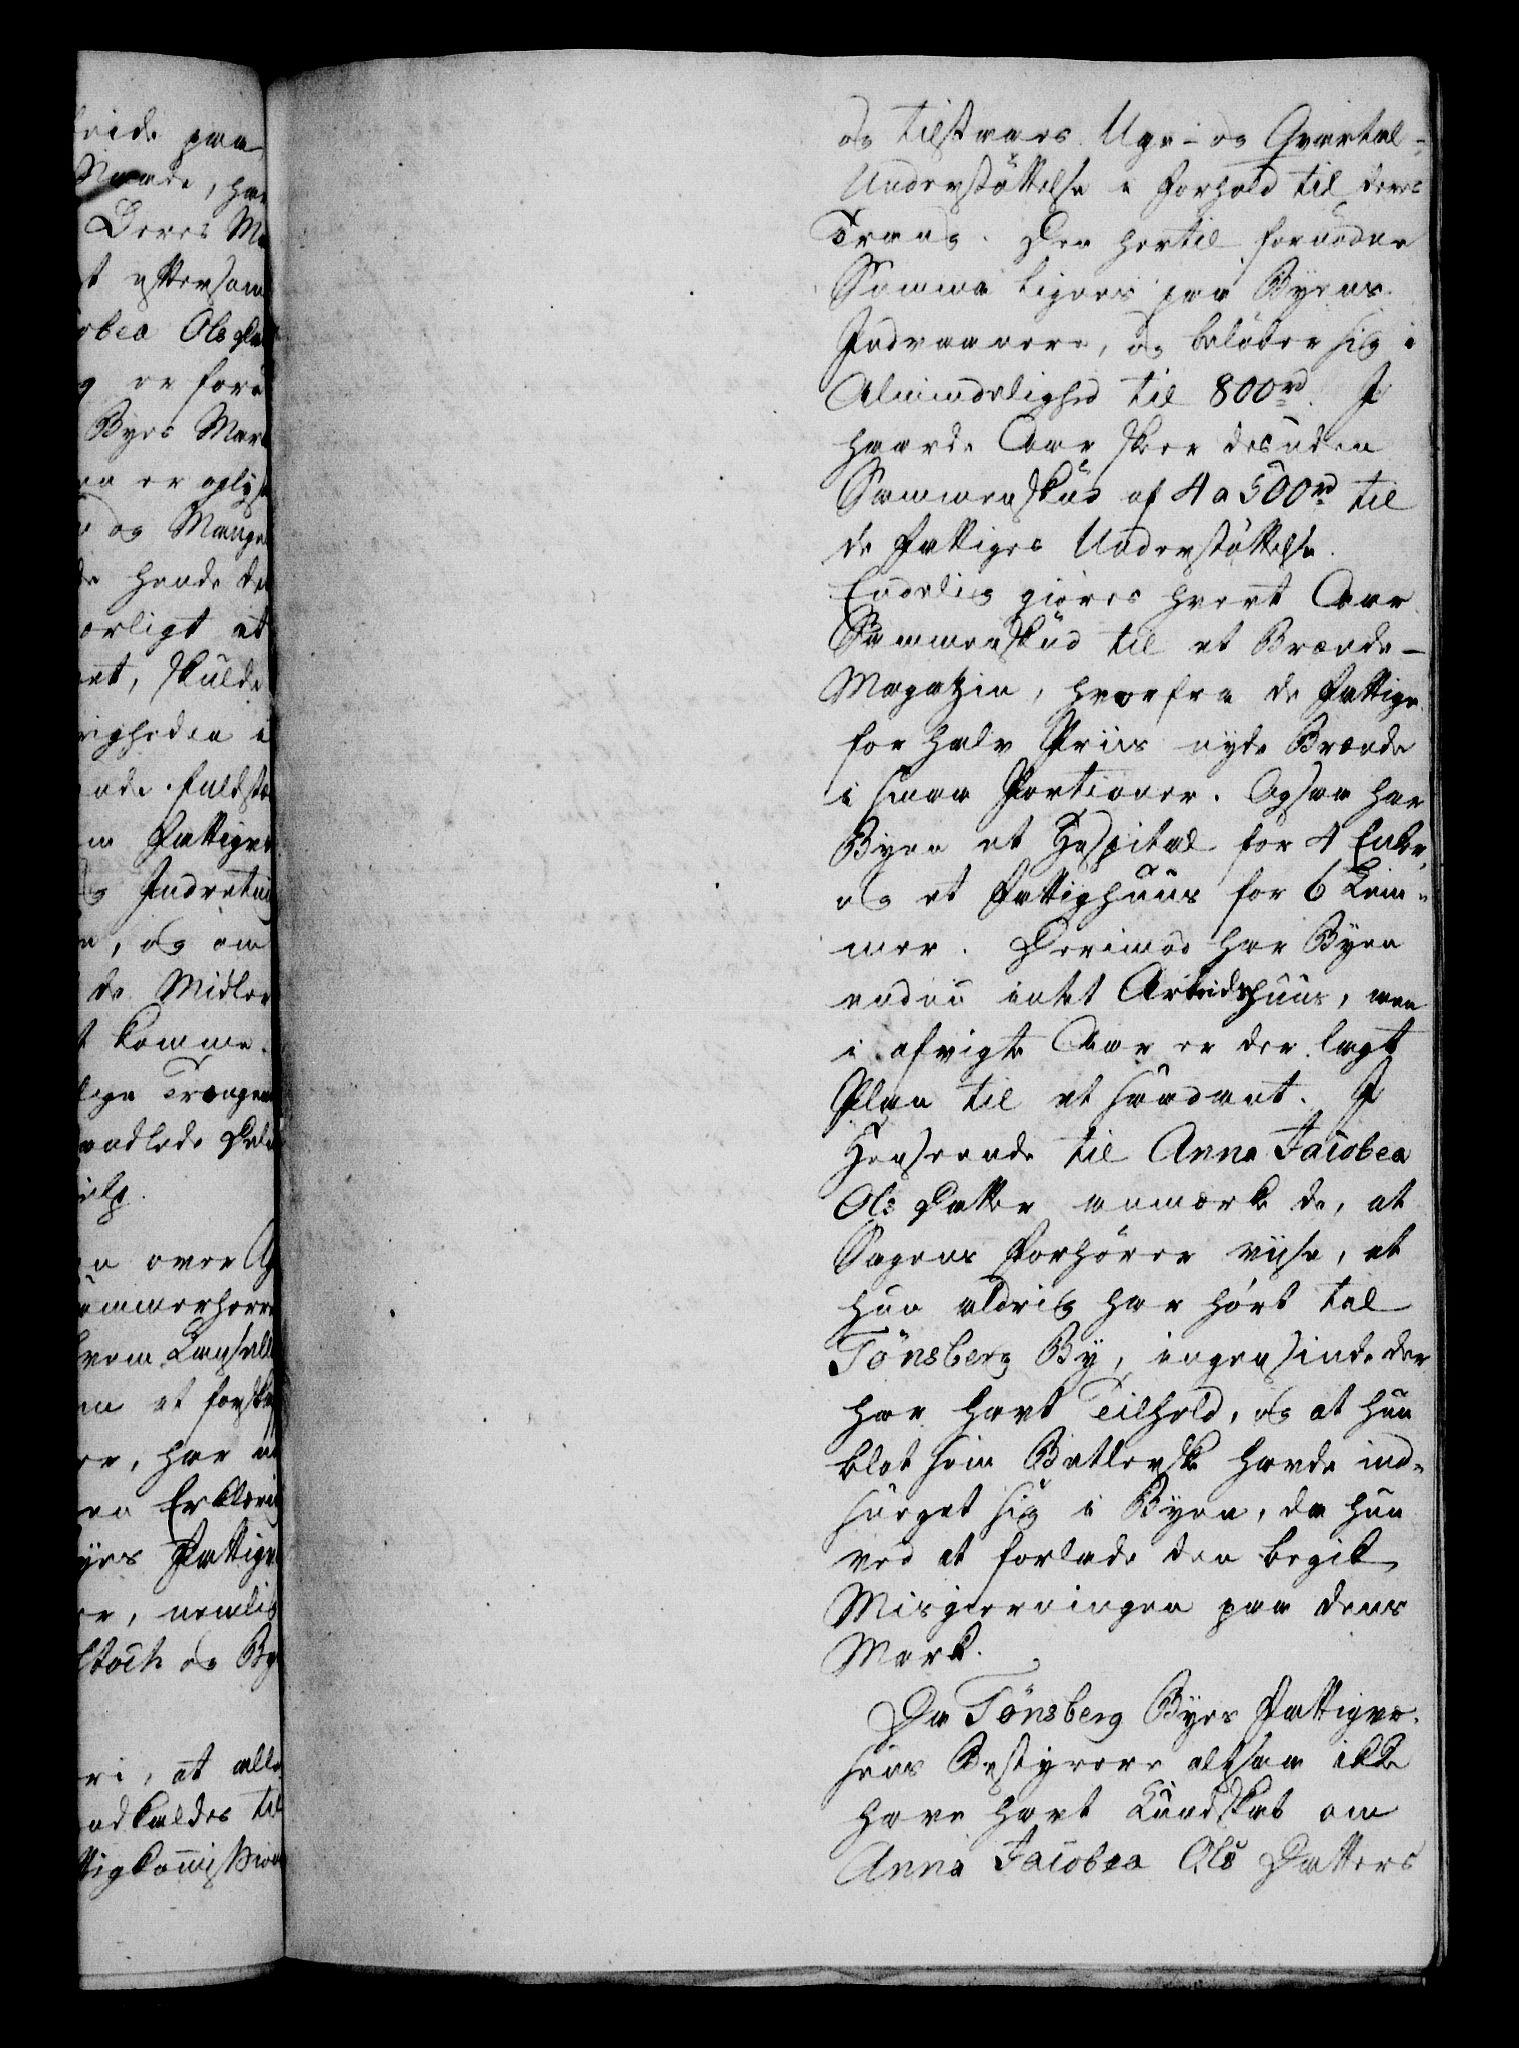 beide paa
Naade, har
Deres Ma
st eftersom
cobea Olsdat
g er fore
Byes Mark
en er oplyst
r og Mangel
de hende de
ærligt at
et, skulde
righeden i
ende fuldstæ
m Fattiges
og Indretnin
n, og om
de Midler
t komme
lige Trængen
andlede Del
ielp.
n over Ag
ammerherre
hvem Cancelli
m et forska
er, har u
en Erklæring
yes Fattigv
re, nemlig
ltoch og By
eri, at alle
adkaldes til
tigkommission
og tilstaaes Uge- og Qvartal-
Understøttelse i Forhold til deres
Trang. Den hertil fornødne
Summa lignes paa Byens
Indvaanere, og beløber sig i
Almindelighed til 800 rd. I
haarde Aar skeer desuden
Sammenskud af 4 a 500 rd til
de Fattiges Understøttelse.
Endelig giøres hvert Aar
Sammenskud til et Brænde-
Magatzin, hvorfra de Fattige
for halv Priis nyde Brænde
i smaa Portioner. Ogsaa har
Byen et Hospital for 4 Enker,
og et Fattighuus for 6 Lem-
mer. Derimod har Byen
endnu intet Arbeidshuus, men
i afvigte Aar er der lagt
Plan til et saadant. I
Henseende til Anna Jacobea
Ols Datter anmærke de, at
Sagens Forhører viise, at
hun aldrig har hørt til
Tönsberg By, ingensinde der
har havt Tilhold, og at hun
blot som Betlerske havde ind-
sneget sig i Byen, da hun
ved at forlade den begik
Misgierningen paa dens
Mark.
Da Tönsberg Byes Fattigvæ-
sens Bestyrere altsaa ikke
have havt Kundskab om
Anna Jacobea Ols Datters